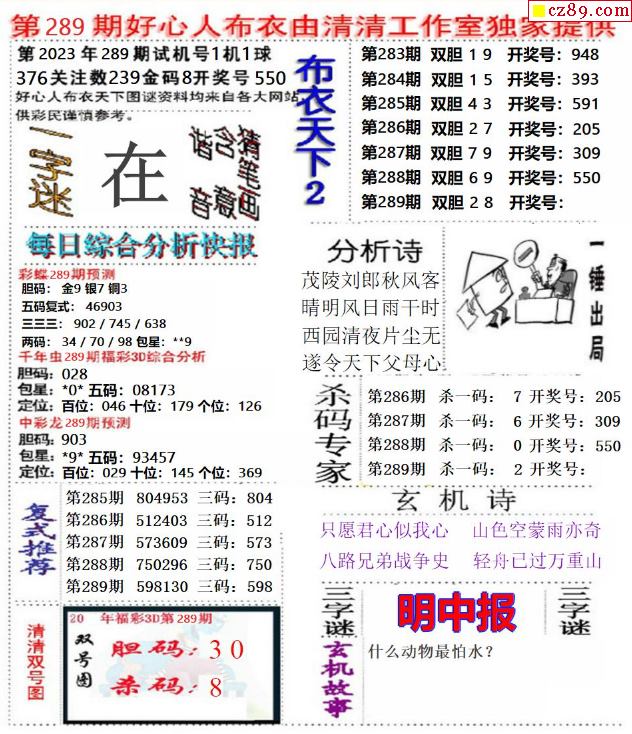 cz89.com
第289期好心人布衣由清清工作室独家提供
第2023年289期试机号1机1球
376关注数239金码8开奖号550
好心人布衣天下图谜资料均来自各大网站
供彩民谨慎参考。
一字谜
在
谐音
含意
猜笔画
布衣天下2
第283期 双胆19 开奖号：948
第284期 双胆15 开奖号：393
第285期 双胆43 开奖号：591
第286期 双胆27 开奖号：205
第287期 双胆79 开奖号：309
第288期 双胆69 开奖号：550
第289期 双胆28 开奖号：
每日综合分析快报
彩蝶289期预测
胆码： 金9 银7 铜3
五码复式： 46903
三三三： 902 / 745 / 638
两码： 34 / 70 / 98 包星：**9
千年虫289期福彩3D综合分析
胆码：028
包星：*0* 五码：08173
定位：百位：046 十位：179 个位：126
中彩龙289期预测
胆码：903
包星：*9* 五码：93457
定位：百位：029 十位：145 个位：369
分析诗
茂陵刘郎秋风客
晴明风日雨干时
西园清夜片尘无
遂令天下父母心
一锤出局
杀码专家
第286期 杀一码： 7 开奖号：205
第287期 杀一码： 6 开奖号：309
第288期 杀一码： 0 开奖号：550
第289期 杀一码： 2 开奖号：
复式推荐
第285期 804953 三码：804
第286期 512403 三码：512
第287期 573609 三码：573
第288期 750296 三码：750
第289期 598130 三码：598
玄机诗
只愿君心似我心 山色空蒙雨亦奇
八路兄弟战争史 轻舟已过万重山
清清双号图
20 年福彩3D第289期
双号图
胆码：30
杀码：8
三字谜
明中报
三字谜
玄机故事
什么动物最怕水？